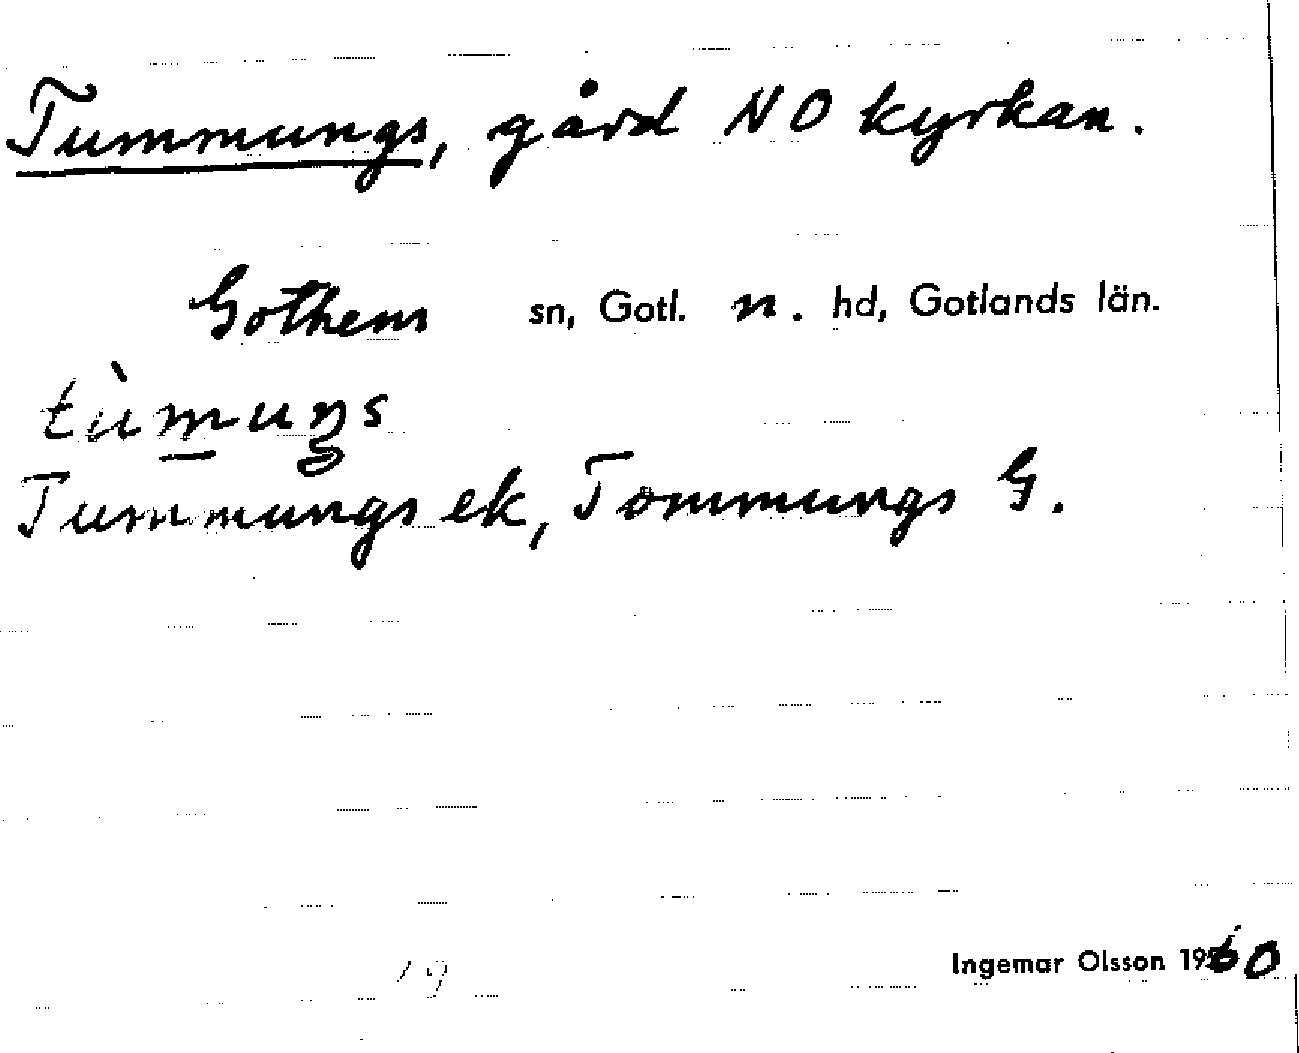 Tummungs, gård NO kyrkan.
Gothem sn, Gotl. n. hd, Gotlands län.
tùmuŋs
Tummungs ek, Tommungs G.
Ingemar Olsson 1960
19